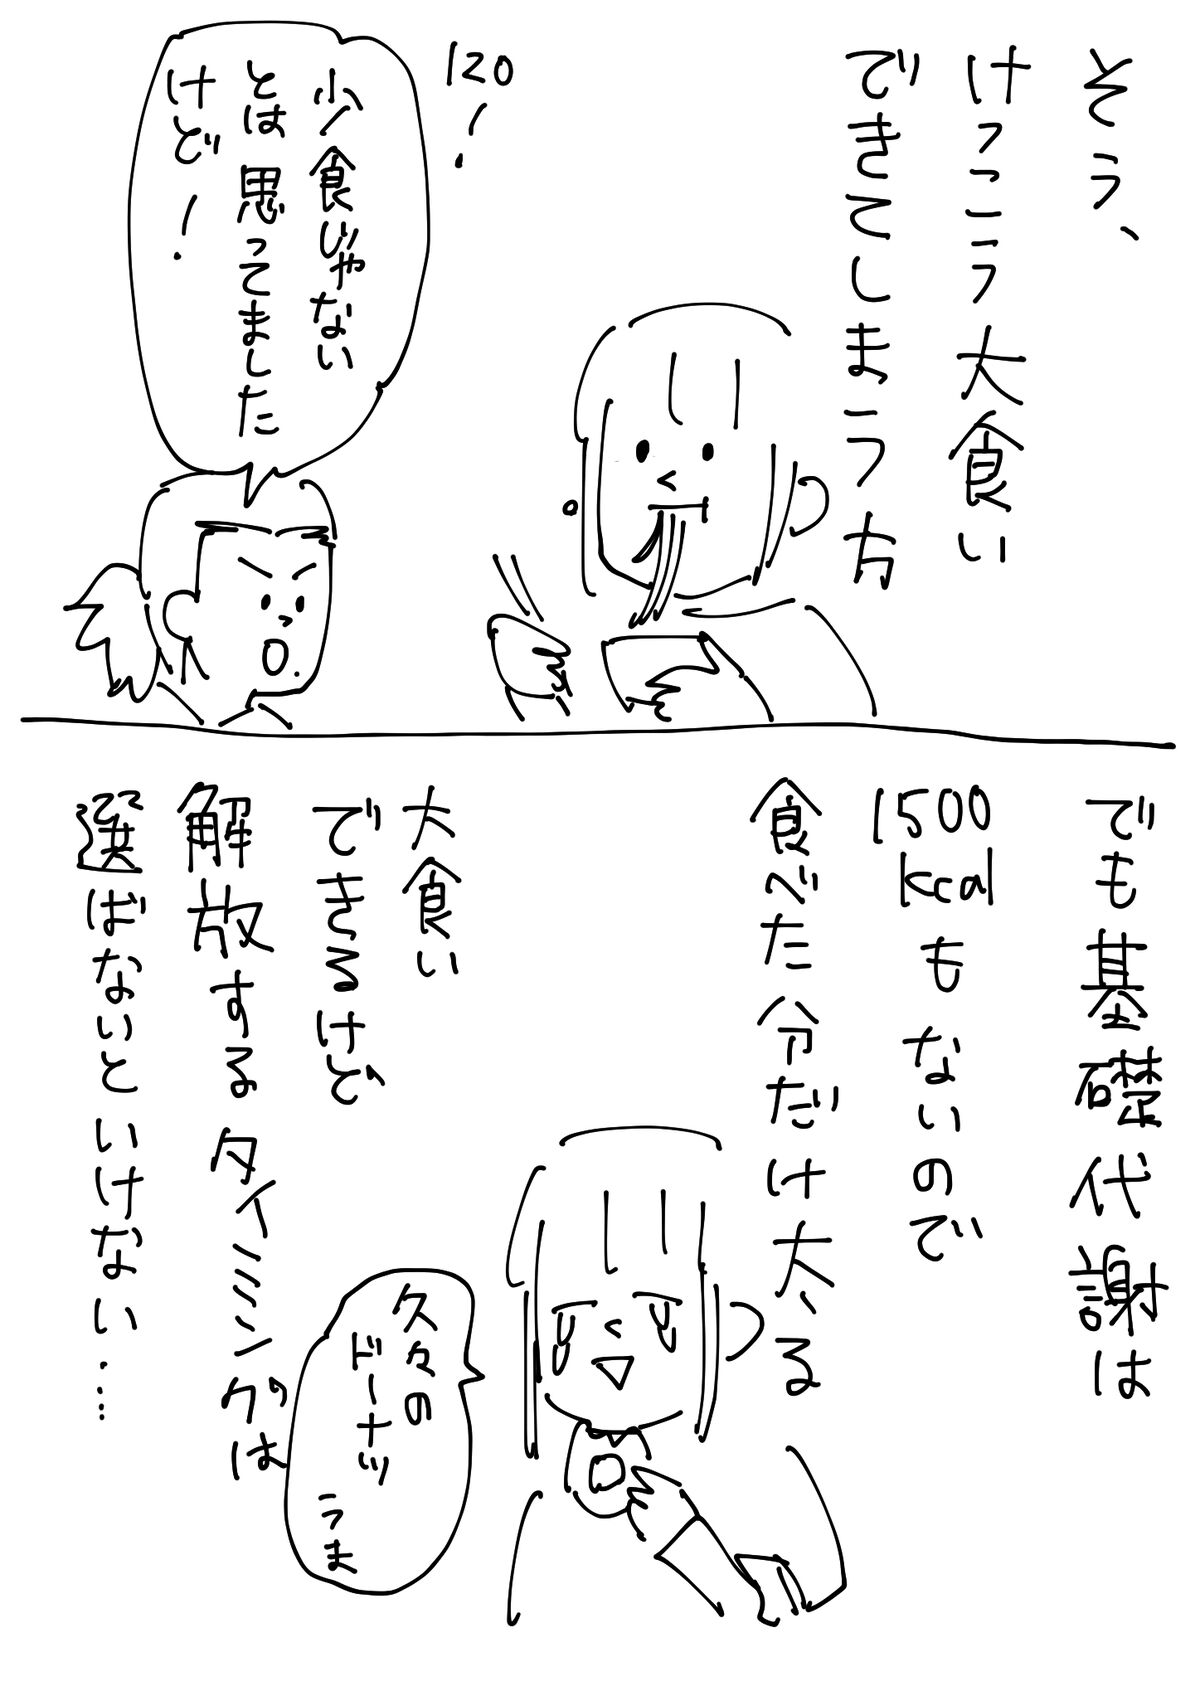 そう、
けっこう大食い
できてしまう方
120!
少食じゃない
とは思ってました
けど!
でも基礎代謝は
1500
kcalもないので
食べた分だけ太る
久々の
ドーナツ
うま
大食い
できるけど
解放するタイミングは
選ばないといけない……